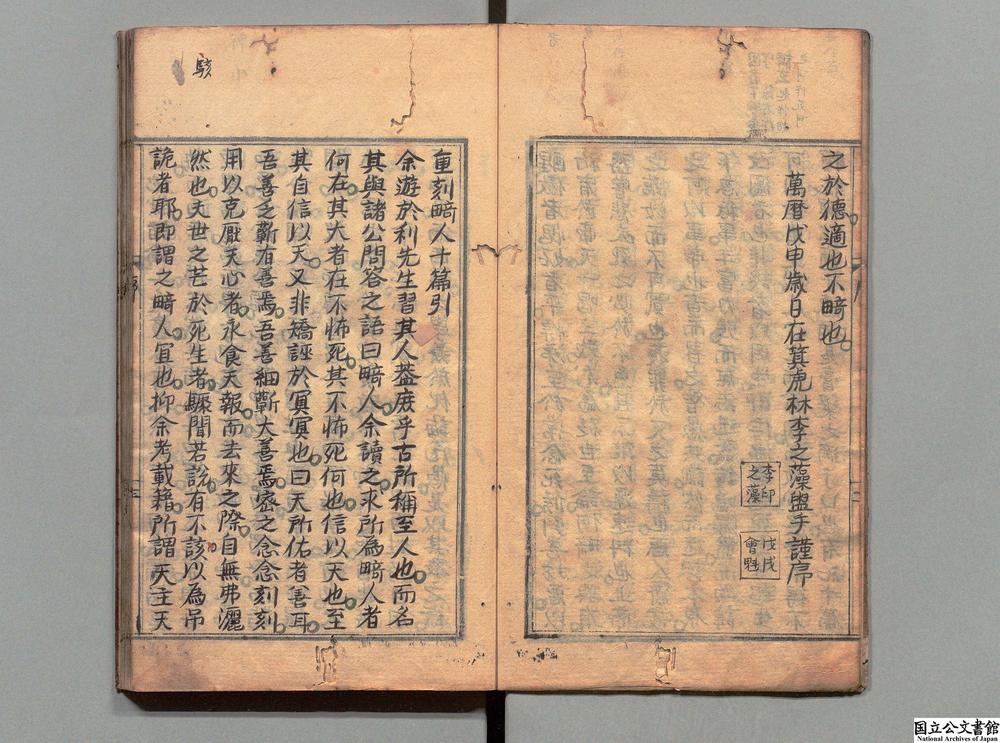 之於德適也不畸也
萬曆戊申歲日在箕虎林李之藻盥手謹序
李印
之藻
戊戌
會魁
重刻畸人十篇引
余遊於利先生習其人葢庻乎古所稱至人也而名
其與諸公問答之語曰畸人余讀之求所為畸人者
何在其大者在不怖死其不怖死何也信以天也至
其自信以天又非矯誣於冥冥也曰天所佑者善耳
吾善乏蘄有善焉吾善細蘄大善焉密之念念刻刻
用以克厭天心者永食天報而去來之際自無弗灑
然也夫世之芒於死生者驟聞若說有不該以為弔
詭者耶即謂之畸人宜也抑余考載籍所謂天主天
駭
国立公文書館
National Archives of Japan